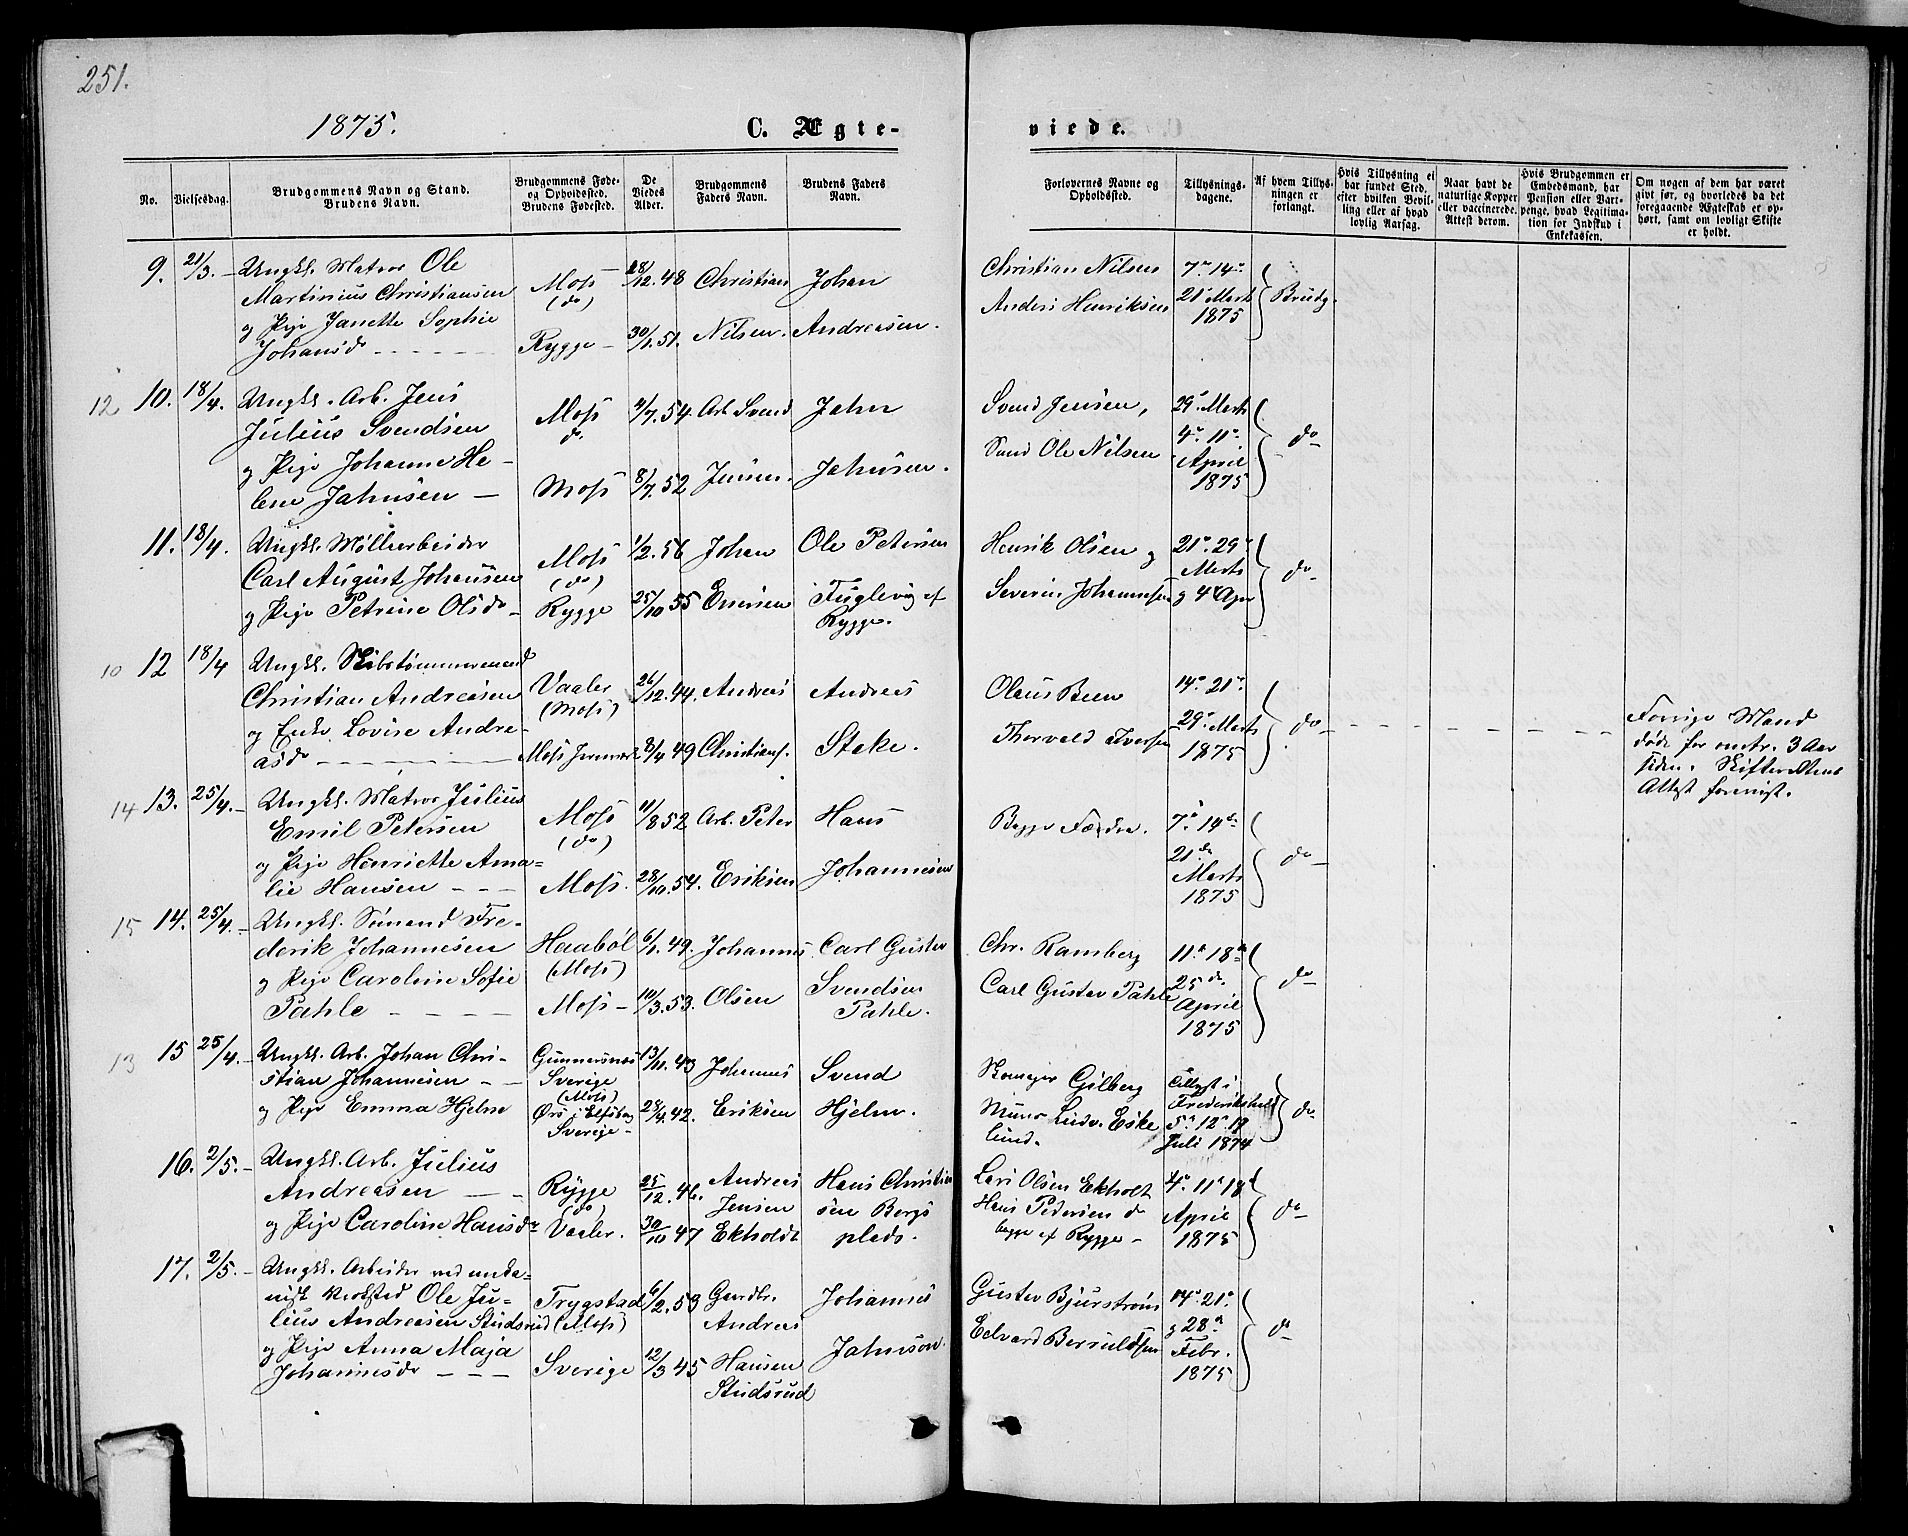 251.
1875.
C. Ægte-
viede.
No.
Vielsesdag.
Brudgommens Navn og Stand.
Brudens Navn.
Brudgommens Føde-
og Opholdssted.
Brudens Fødested.
De
Viedes
Alder.
Brudgommens
Faders Navn.
Brudens Faders
Navn.
Forlovernes Navne og
Opholdssted.
Tillysnings-
dagene.
Af hvem Tillys-
ningen er
forlangt.
Hvis Tillysning ei
har fundet Sted,
efter hvilken Bevil-
ling eller af hvad
lovlig Aarsag.
Naar havt de
naturlige Kopper
eller vaccinerede.
Attest derom.
Hvis Brudgommen er
Embedsmand, har
Pension eller Vart-
penge, hvad Legitima-
tion for Indskud i
Enkekassen.
Om nogen af dem har været
gift før, og hvorledes da det
foregaaende Ægteskab er op-
hørt, samt om lovligt Skifte
er holdt.
9. 21/3. Ungkl. Matros Ole
Martinius Christiansen
og Pige Janette Sophie
Johansd
Moss
(do)
Rygge
28/12.48
30/1.51.
Christian
Nilsen.
Johan
Andreasen.
Christian Nilsen
Anders Henriksen
7de 14de
21de Marts
1875
Brudg.
12 10. 18/4. Ungkl. Arb. Jens
Julius Svendsen
og Pige Johanne He-
lene Jahnsen
Moss
do.
Moss
4/7.54.
8/7.52
Arb. Svend
Jensen.
Jahn
Jahnsen.
Svend Jensen,
Sand Ole Nilsen
29de Marts
4de 11de
April
1875
do
11. 18/4. Ungkl. Møllearbeider
Carl August Johansen
og Pige Petrine Olsdr
Moss
(do)
Rygge
1/2.56
25/10 55
Johan
Ole Petersen
Fuglevig af
Rygge.
Henrik Olsen og
Severin Johannesen
21de 29de
Marts
og 4de Apr
do
10 12 18/4 Ungkl. Skibstømmermand
Christian Andreasen
og Enke Lovise Andre-
asdr
Vaaler
(Moss)
Moss Jernverk
26/12.44.
8/4 49
Andreas
Christians.
Andreas
Stake.
Olaus Been
Thorvald Iversen
14de 21de
29de Marts
1875
do
Forrige Mand
døde for omtr. 3 Aar
siden. Skifterettens
Attest forevist.
14 13. 25/4. Ungkl. Matros Julius
Emil Petersen
og Pige Henriette Ama-
lie Hansen
Moss
(do)
Moss.
11/8 52
28/10.54.
Arb. Peter
Eriksen
Hans
Johannesen
Begge Fædre.
7de 14de
21de
Marts
1875
do
15 14. 25/4. Ungkl. Sømand Fre-
derik Johannesen
og Pige Caroline Sofie
Pahle
Haabøl
(Moss)
Moss
6/1.49.
10/3.53.
Johannes
Olsen
Carl Gustav
Svendsen
Pahle.
Chr. Ramberg
Carl Gustav Pahle
11de 18de
25de
April
1875
do
13 15 25/4. Ungkl. Arb. Johan Chri-
stian Johannesen
og Pige Emma Hjelm
Gunnersnæs
Sverige
(Moss)
Ørs i Elfsborg
Sverige
13/11.43
28/4.42.
Johannes
Eriksen
Svend
Hjelm.
Skomager Gilberg
Murer Ludv. Eske-
lund.
Tillyst i
Frederikshald
5de 12de 19
Juli 1874
do
16. 2/5. Ungkl. Arb. Julius
Andreasen
og Pige Caroline Hansdr
Rygge
(do)
Vaaler.
25/12.46.
30/10 47
Andreas
Jensen
Ekholdt
Hans Christian-
sen Bergs
plads.
Lars Olsen Ekholt
Hans Pedersen do
begge af Rygge
4de 11de 18de
April
1875
do
17. 2/5. Ungkl. Arbeider ved meka-
nisk Verksted Ole Ju-
lius Andreasen Studsrud
og Pige Anna Maja
Johannesdr
Trygstad
(Moss)
Sverige
6/2.53
12/3 45
Gaardbr.
Andreas
Hansen
Studsrud
Johannes
Jahnson.
Gustav Bjurstrøm
Edvard Berruldsen
14de 21de
og 28de
Febr.
1875
do